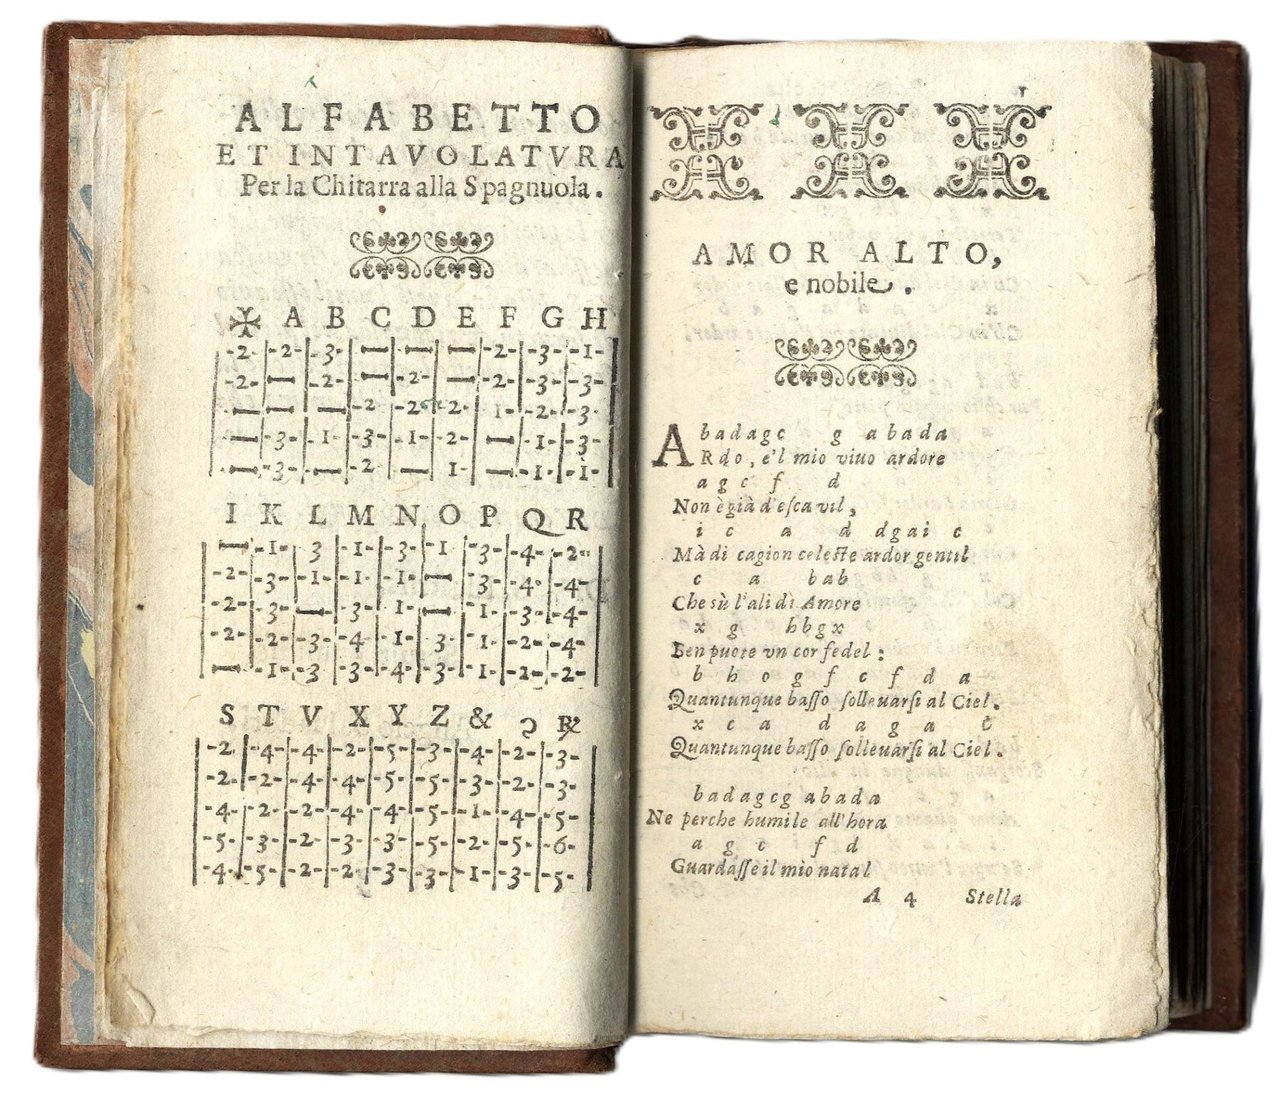 ALFABETTO
ET INTAVOLATVRA
Per la Chitarra alla Spagnuola.
✠ A B C D E F G H
-2- -2- -3- — — — -2- -3- -1-
-2- — -2- — -2- — -2- -3- -3-
— — — -2 -2- 2- 1- -2- -3-
— -3- -1- -3- -1- -2- — -1- -3-
— -3- — -2 — 1- — -1- -1-
I K L M N O P Q R
— -1- 3 -1- -3- -1 -3- -4- -2-
-2- -3- -1- -1- -1- — -3- -3- -4-
-2- -3- — -3- 1- — -1- -3- -4-
-2- -2- -3- -4 -1- 3 1- -2- -4-
— -1- -3 -3- -4- -3- 1- -2- -2-
S T V X Y Z & ɔ ℞
-2- -4- -4- -2- -5- -3- -4- -2- -3-
-2- -2- -4- -4- -5- -5- -3- -2- -3-
-4- -2- -2- -4- -4- -5- -1- -4- -5-
-5- -3- -2- -3- -3- -5- -2- -5- -6-
-4- -5- -2- -2- -3- -3- -1- -3- -5-
AMOR ALTO,
e nobile.
b a d a g c g a b a d a
ARdo, e'l mio viuo ardore
a g c f d
Non è già d'eſca vil,
i c a d d g a i c
Mà di cagion celeſte ardor gentil
c a b a b
Che sù l'ali di Amore
x g h b g x
Ben puote vn cor fedel:
b h o g f c f d a
Quantunque baſſo ſolleuarſi al Ciel.
x c a d a g a c
Quantunque baſſo ſolleuarſi al Ciel.
b a d a g c g a b a d a
Ne perche humile all'hora
a g c f d
Guardaſſe il mio natal
A 4 Stella